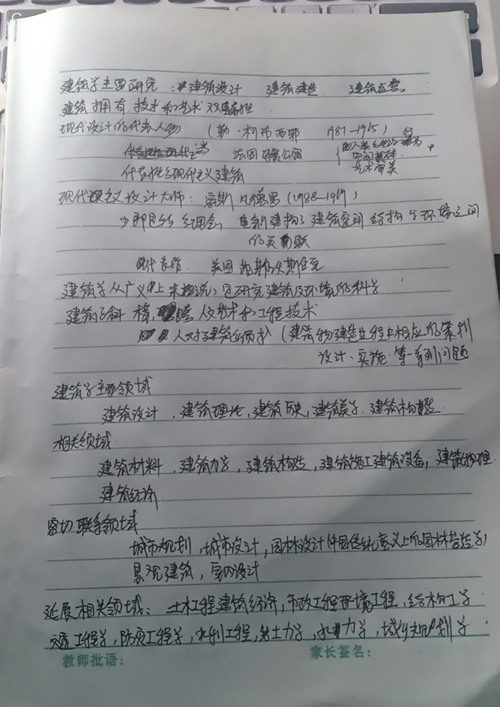 建筑学主要研究：建筑设计 建筑建造 建筑运营
建筑拥有技术和艺术双重属性
现代设计的代表人物（勒·柯布西耶 1987-1965）
法国 公寓
代表性现代主义建筑
现代主义设计大师：密斯 凡德罗（1988-1969）
少即是多 理念，重新建构了建筑空间结构与环境之间
的关系
代表作 美国
建筑学从广义上来说，是研究建筑及环境的科学
建筑学科 人文 艺术和工程技术
人对建筑 （建筑物建造过程上相应的策划
设计、实施等一系列问题
建筑学主要领域
建筑设计，建筑理论，建筑历史，建筑美学，建筑构造
相关领域
建筑材料，建筑力学，建筑构造，建筑施工建筑设备，建筑物理
建筑经济
密切联系领域
城市规划，城市设计，园林设计（中国传统意义上的园林营造学）
景观建筑，室内设计
延展相关领域：土木工程建筑经济，市政工程环境工程，结构工学
交通工程学，防灾工程学，水利工程，岩土力学，水力学，城乡规划学
教师批语： 家长签名：